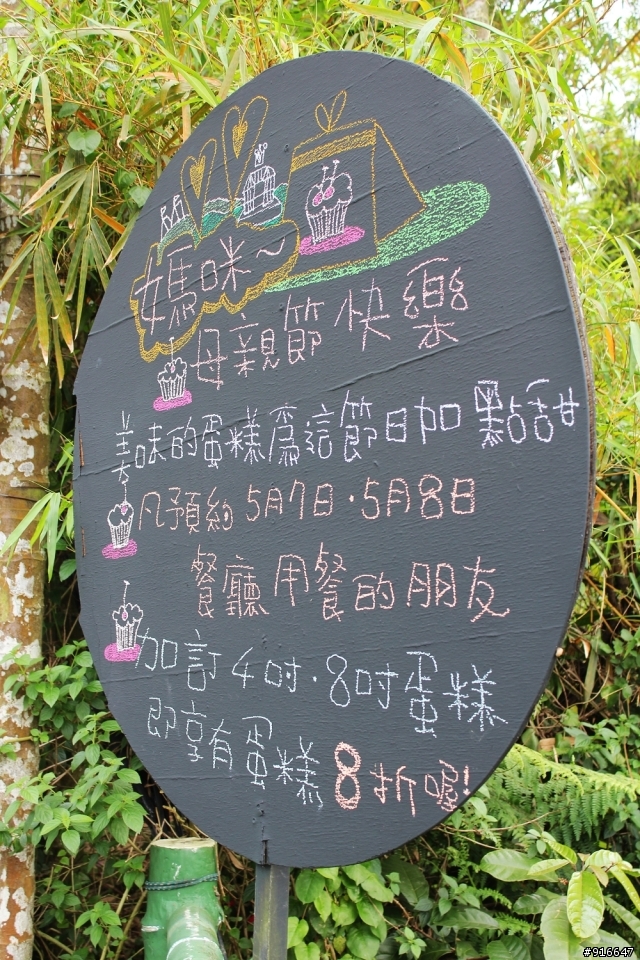 媽咪~
母親節快樂
美味的蛋糕為這節日加點甜
凡預約5月7日·5月8日
餐廳用餐的朋友
加訂4吋·8吋蛋糕
即享有蛋糕8折喔!
#916647